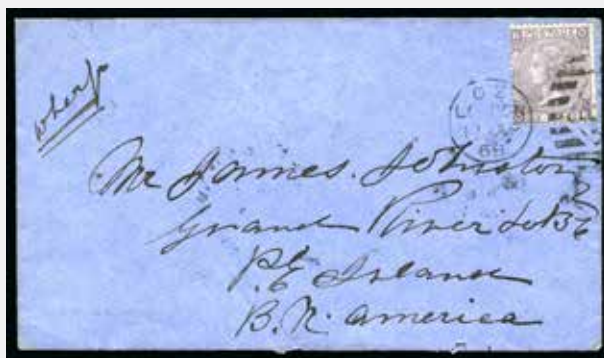 wharf
Mr James. Johnston
Grand River Lot 56
P. E Island
B. N. America
LON